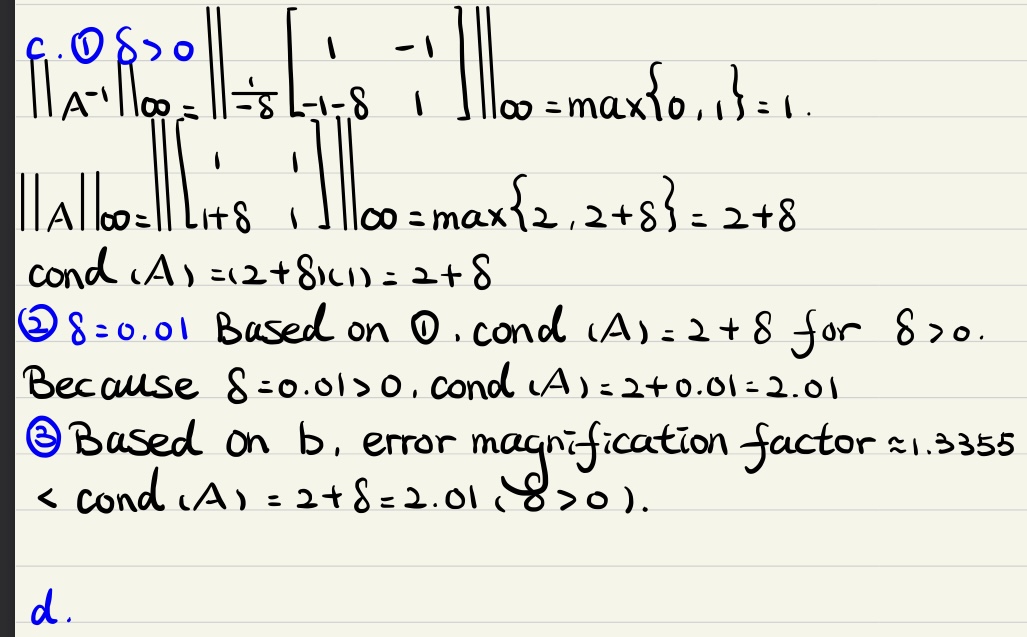 c. ① δ>0
||A⁻¹||∞ = ||1/-δ [1 -1; -1-δ 1]||∞ = max{0, 1} = 1.
||A||∞ = ||[1 1; 1+δ 1]||∞ = max{2, 2+δ} = 2+δ
cond (A) = (2+δ)(1) = 2+δ
② δ=0.01 Based on ①, cond (A) = 2+δ for δ>0.
Because δ=0.01>0, cond (A) = 2+0.01=2.01
③ Based on b, error magnification factor ≈1.3355
< cond (A) = 2+δ=2.01 (δ>0).
d.